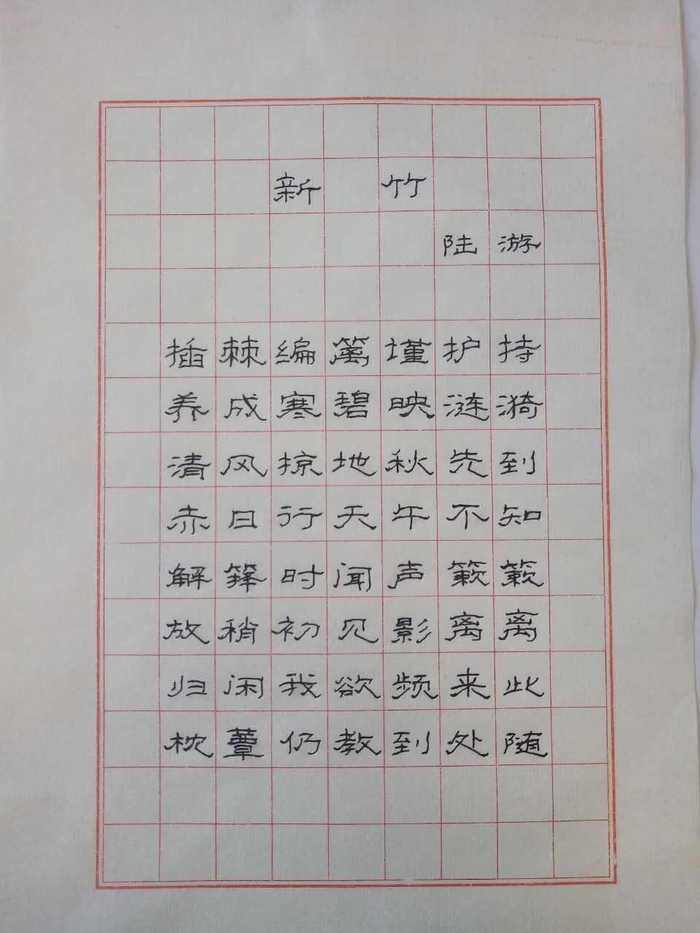 新竹
陆游
插棘编篱墐护持
养成寒碧映涟漪
清风掠地秋先到
赤日行天午不知
解箨时闻声簌簌
放稍初见影离离
归闲我欲频来此
枕蕈仍教到处随